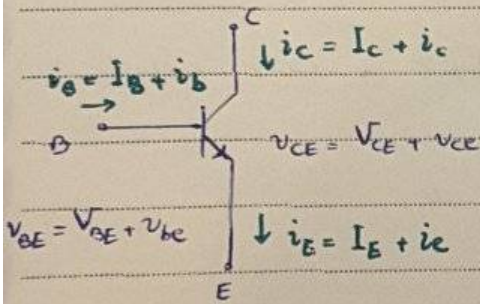 C
↓ i_C = I_C + i_c
i_B = I_B + i_b
→
B
v_CE = V_CE + v_ce
v_BE = V_BE + v_be
↓ i_E = I_E + i_e
E